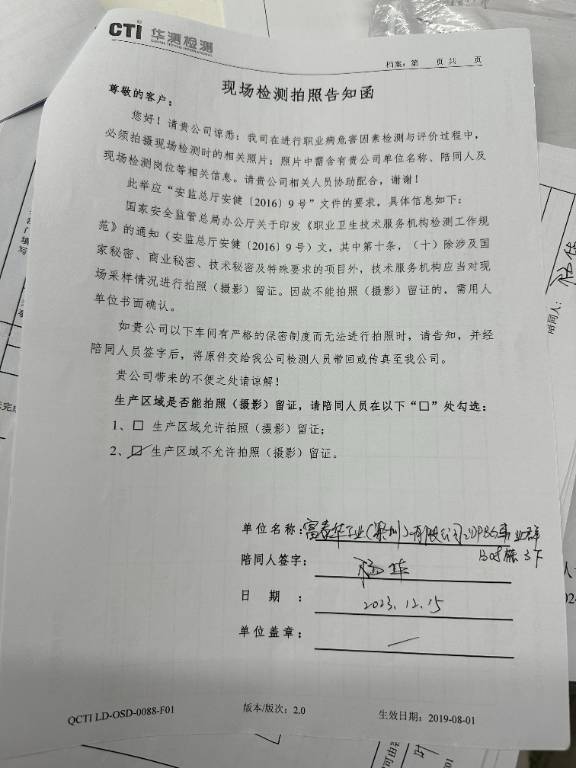 CTI 华测检测
档案：第 页 共 页
现场检测拍照告知函
尊敬的客户：
您好！请贵公司谅悉：我司在进行职业病危害因素检测与评价过程中，
必须拍摄现场检测时的相关照片；照片中需含有贵公司单位名称、陪同人及
现场检测岗位等相关信息。请贵公司相关人员协助配合，谢谢！
此举应“安监总厅安健〔2016〕9号”文件的要求，具体信息如下：
国家安全监管总局办公厅关于印发《职业卫生技术服务机构检测工作规
范》的通知（安监总厅安健〔2016〕9号）文，其中第十条，（十）除涉及国
家秘密、商业秘密、技术秘密及特殊要求的项目外，技术服务机构应当对现
场采样情况进行拍照（摄影）留证。因故不能拍照（摄影）留证的，需用人
单位书面确认。
如贵公司以下车间有严格的保密制度而无法进行拍照时，请告知，并经
陪同人员签字后，将原件交给我公司检测人员带回或传真至我公司。
贵公司带来的不便之处请谅解！
生产区域是否能拍照（摄影）留证，请陪同人员在以下“□”处勾选：
1、□ 生产区域允许拍照（摄影）留证；
2、☑ 生产区域不允许拍照（摄影）留证。
单位名称：富泰华工业(深圳)有限公司
陪同人签字：
日 期 ：2023.12.15
单位盖章：
QCTI LD-OSD-0088-F01 版本/版次：2.0 生效日期：2019-08-01
陪同人：